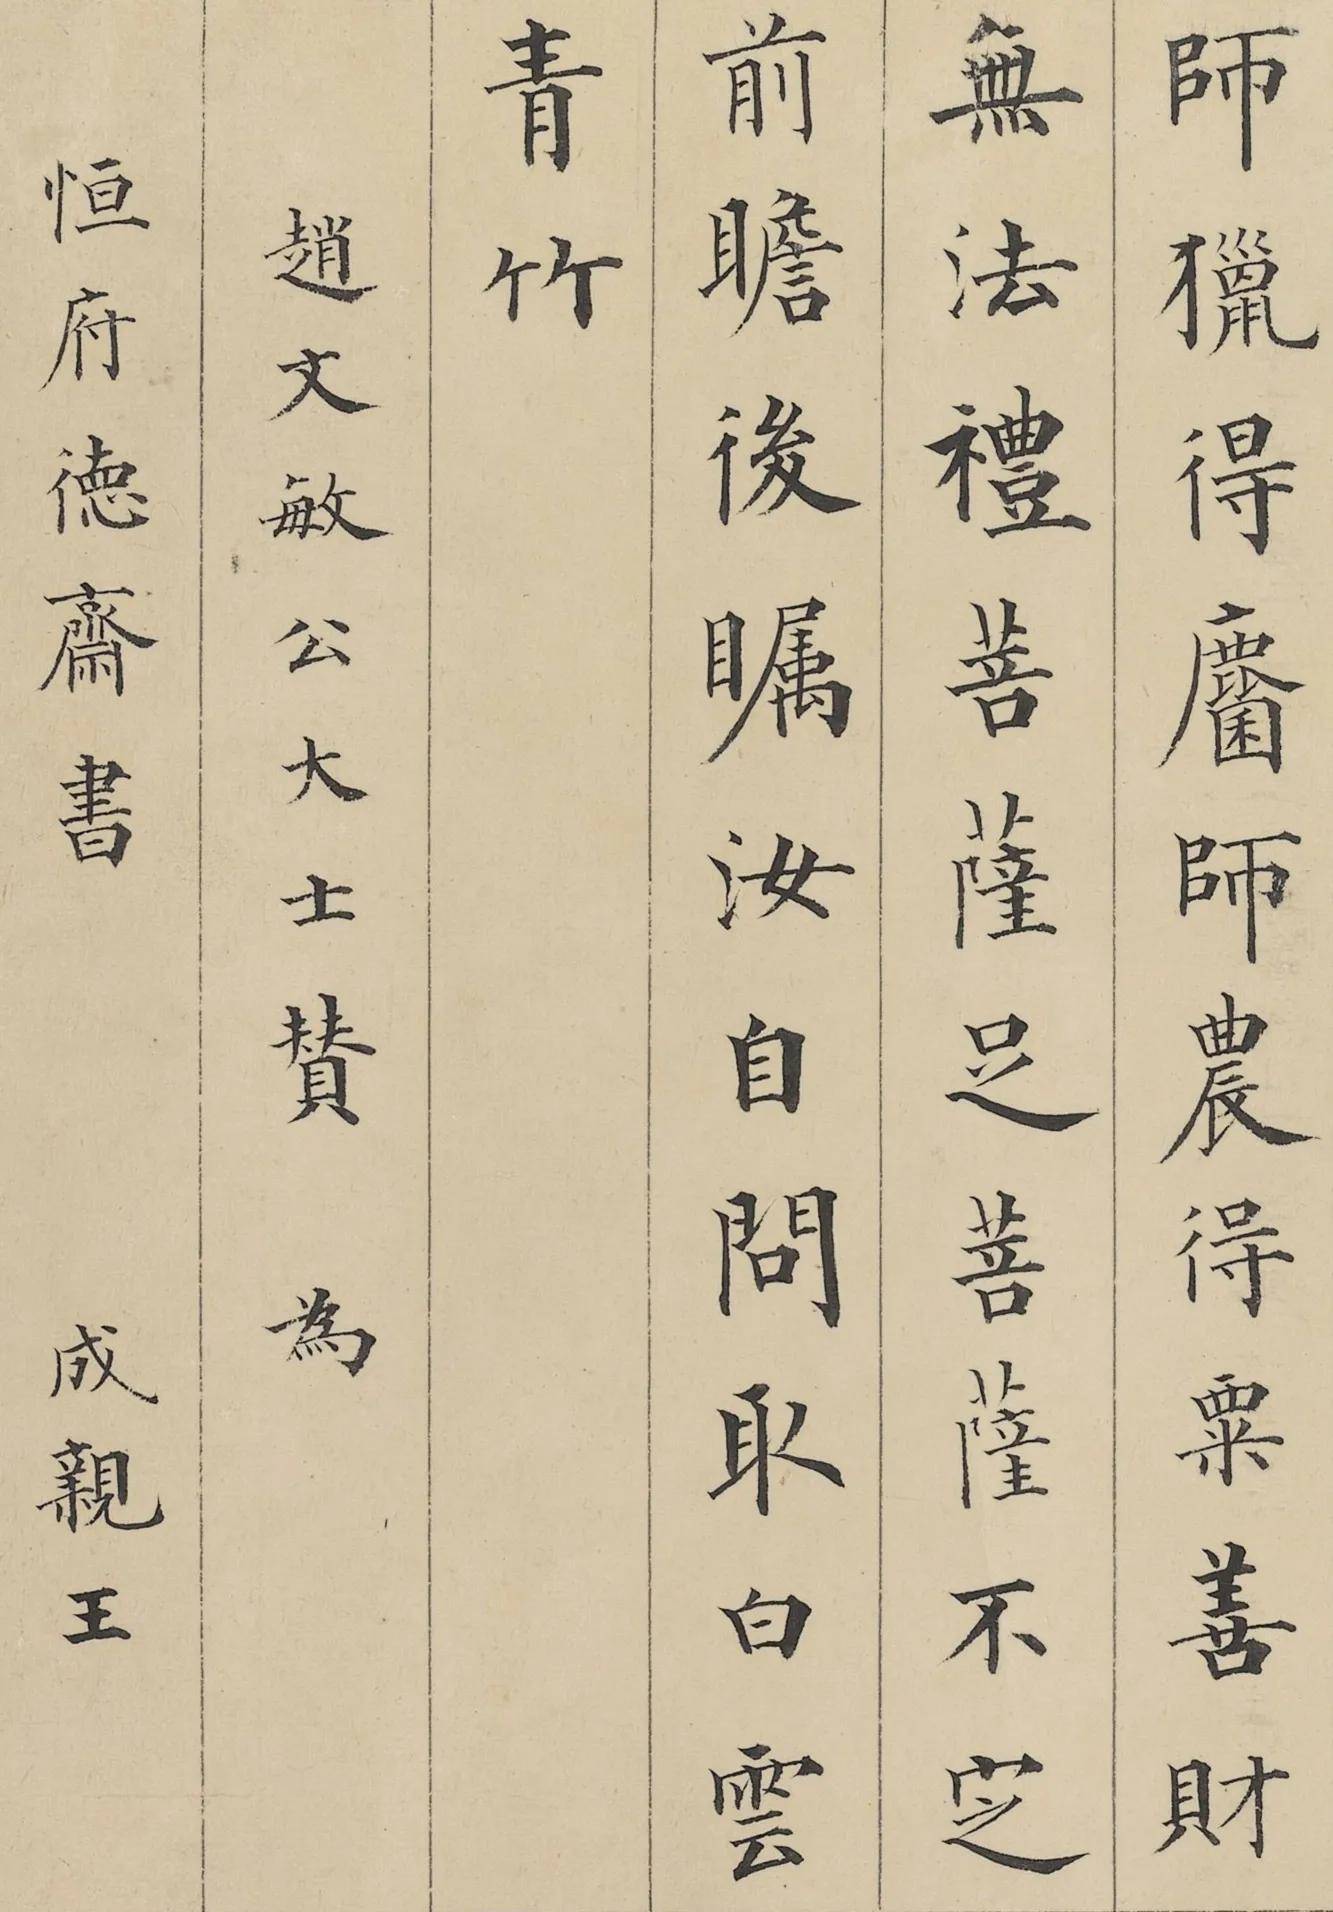 師獵得麕師農得粟善財
無法禮菩薩足菩薩不㝎
前瞻後矚汝自問取白雲
青竹
趙文敏公大士賛 為
恒府徳齋書 成親王